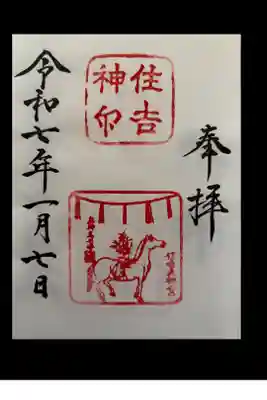 奉拝
住吉
神印
令和七年一月七日